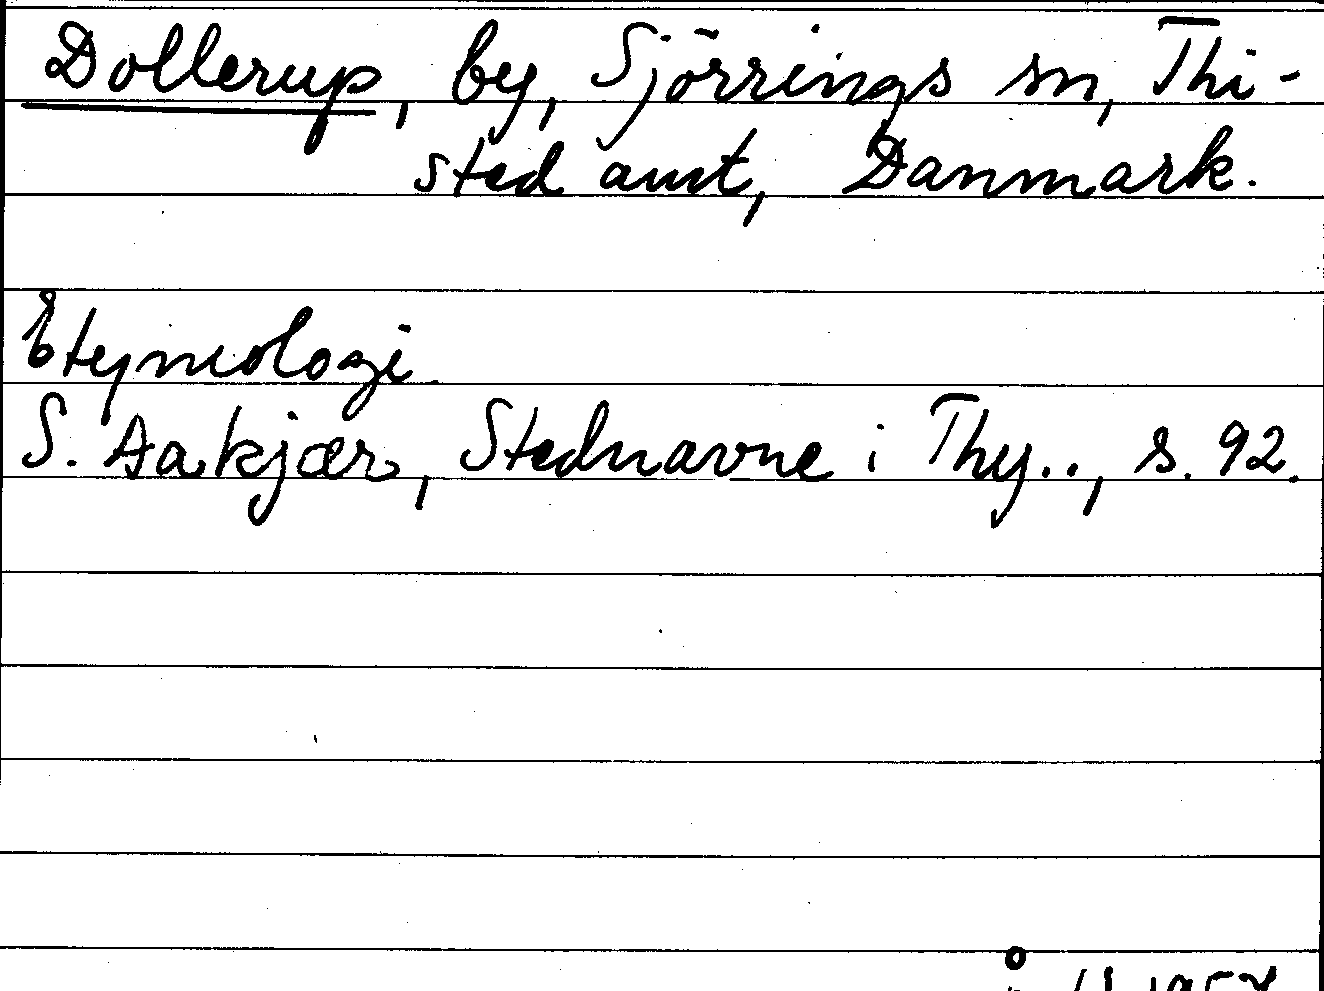 Dollerup, by, Sjörrings sn, Thi-
sted amt, Danmark.
Etymologi.
S. Aakjær, Stednavne i Thy.., s. 92.